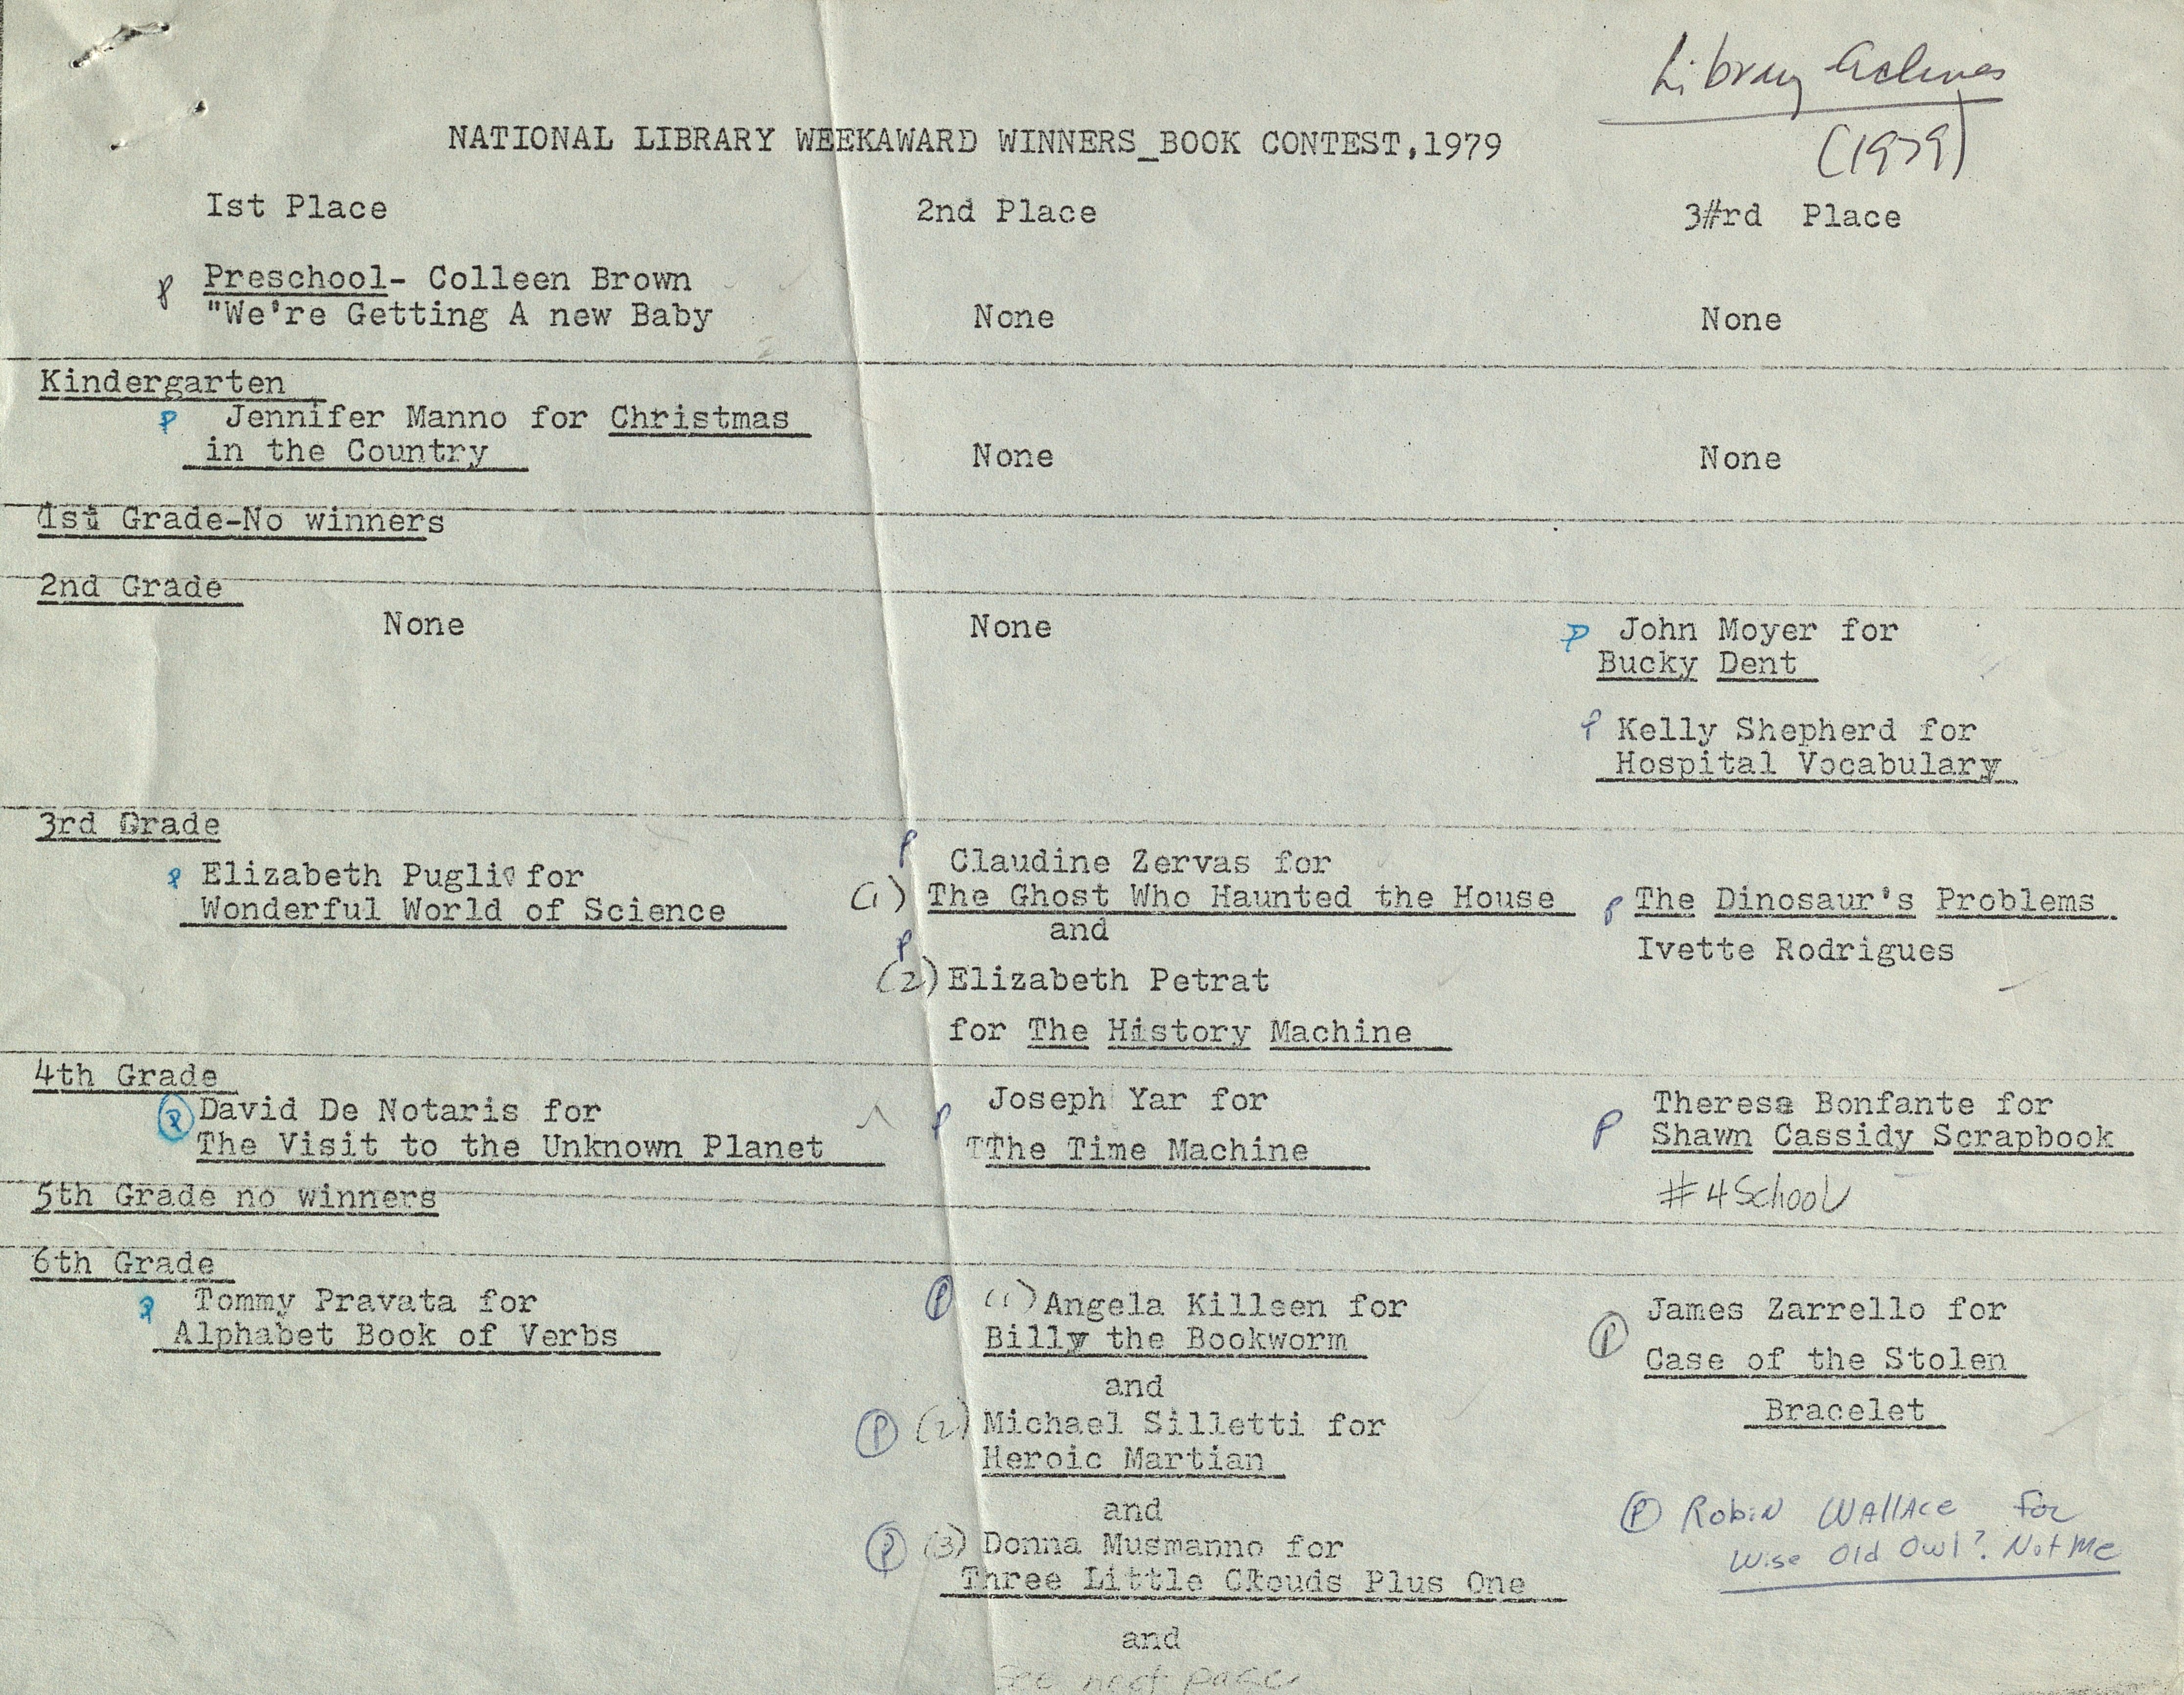 Library Archives
(1979)
NATIONAL LIBRARY WEEKAWARD WINNERS_BOOK CONTEST,1979
Ist Place 2nd Place 3#rd Place
P Preschool- Colleen Brown
"We're Getting A new Baby None None
Kindergarten
P Jennifer Manno for Christmas
in the Country None None
1st Grade-No winners
2nd Grade
None None P John Moyer for
Bucky Dent
P Kelly Shepherd for
Hospital Vocabulary
3rd Grade
P Elizabeth Puglio for
Wonderful World of Science
P Claudine Zervas for
(1) The Ghost Who Haunted the House
and
P
(2) Elizabeth Petrat
for The History Machine
P The Dinosaur's Problems
Ivette Rodrigues
4th Grade
P David De Notaris for
The Visit to the Unknown Planet
P Joseph Yar for
TThe Time Machine
P Theresa Bonfante for
Shawn Cassidy Scrapbook
#4 School
5th Grade no winners
6th Grade
P Tommy Pravata for
Alphabet Book of Verbs
P (1) Angela Killsen for
Billy the Bookworm
and
P (2) Michael Silletti for
Heroic Martian
and
P (3) Donna Musmanno for
Three Little Clouds Plus One
and
See next page
P James Zarrello for
Case of the Stolen
Bracelet
P Robin Wallace for
Wise Old Owl? Not Me